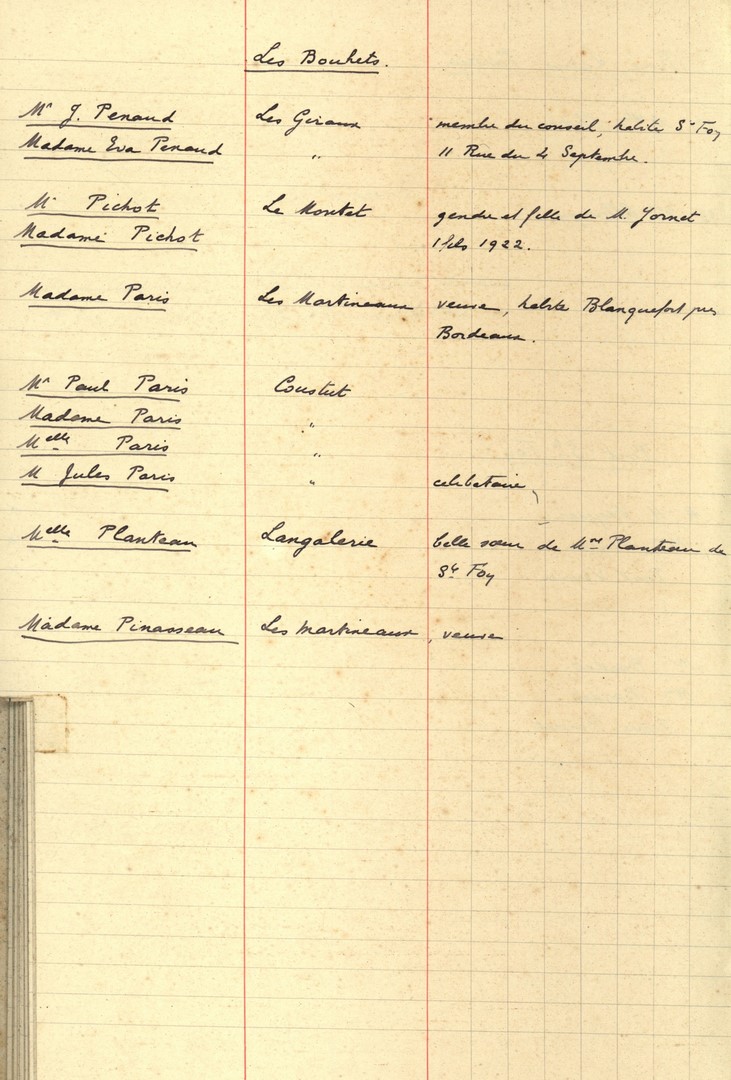 Les Bouhets.
Mr J. Penaud Les Giraux membre du conseil, habite Ste Foy
Madame Eva Penaud " 11 Rue du 4 Septembre.
Mr Pichot Le Montet gendre et fille de M. Jornet
Madame Pichot 1 fils 1922.
Madame Paris Les Martineaux veuve, habite Blanquefort près
Bordeaux.
Mr Paul Paris Coustut
Madame Paris "
Melle Paris "
M Jules Paris " célibataire,
Melle Planteau Langalerie belle sœur de Mme Planteau de
Ste Foy
Madame Pinasseau Les Martineaux, veuve